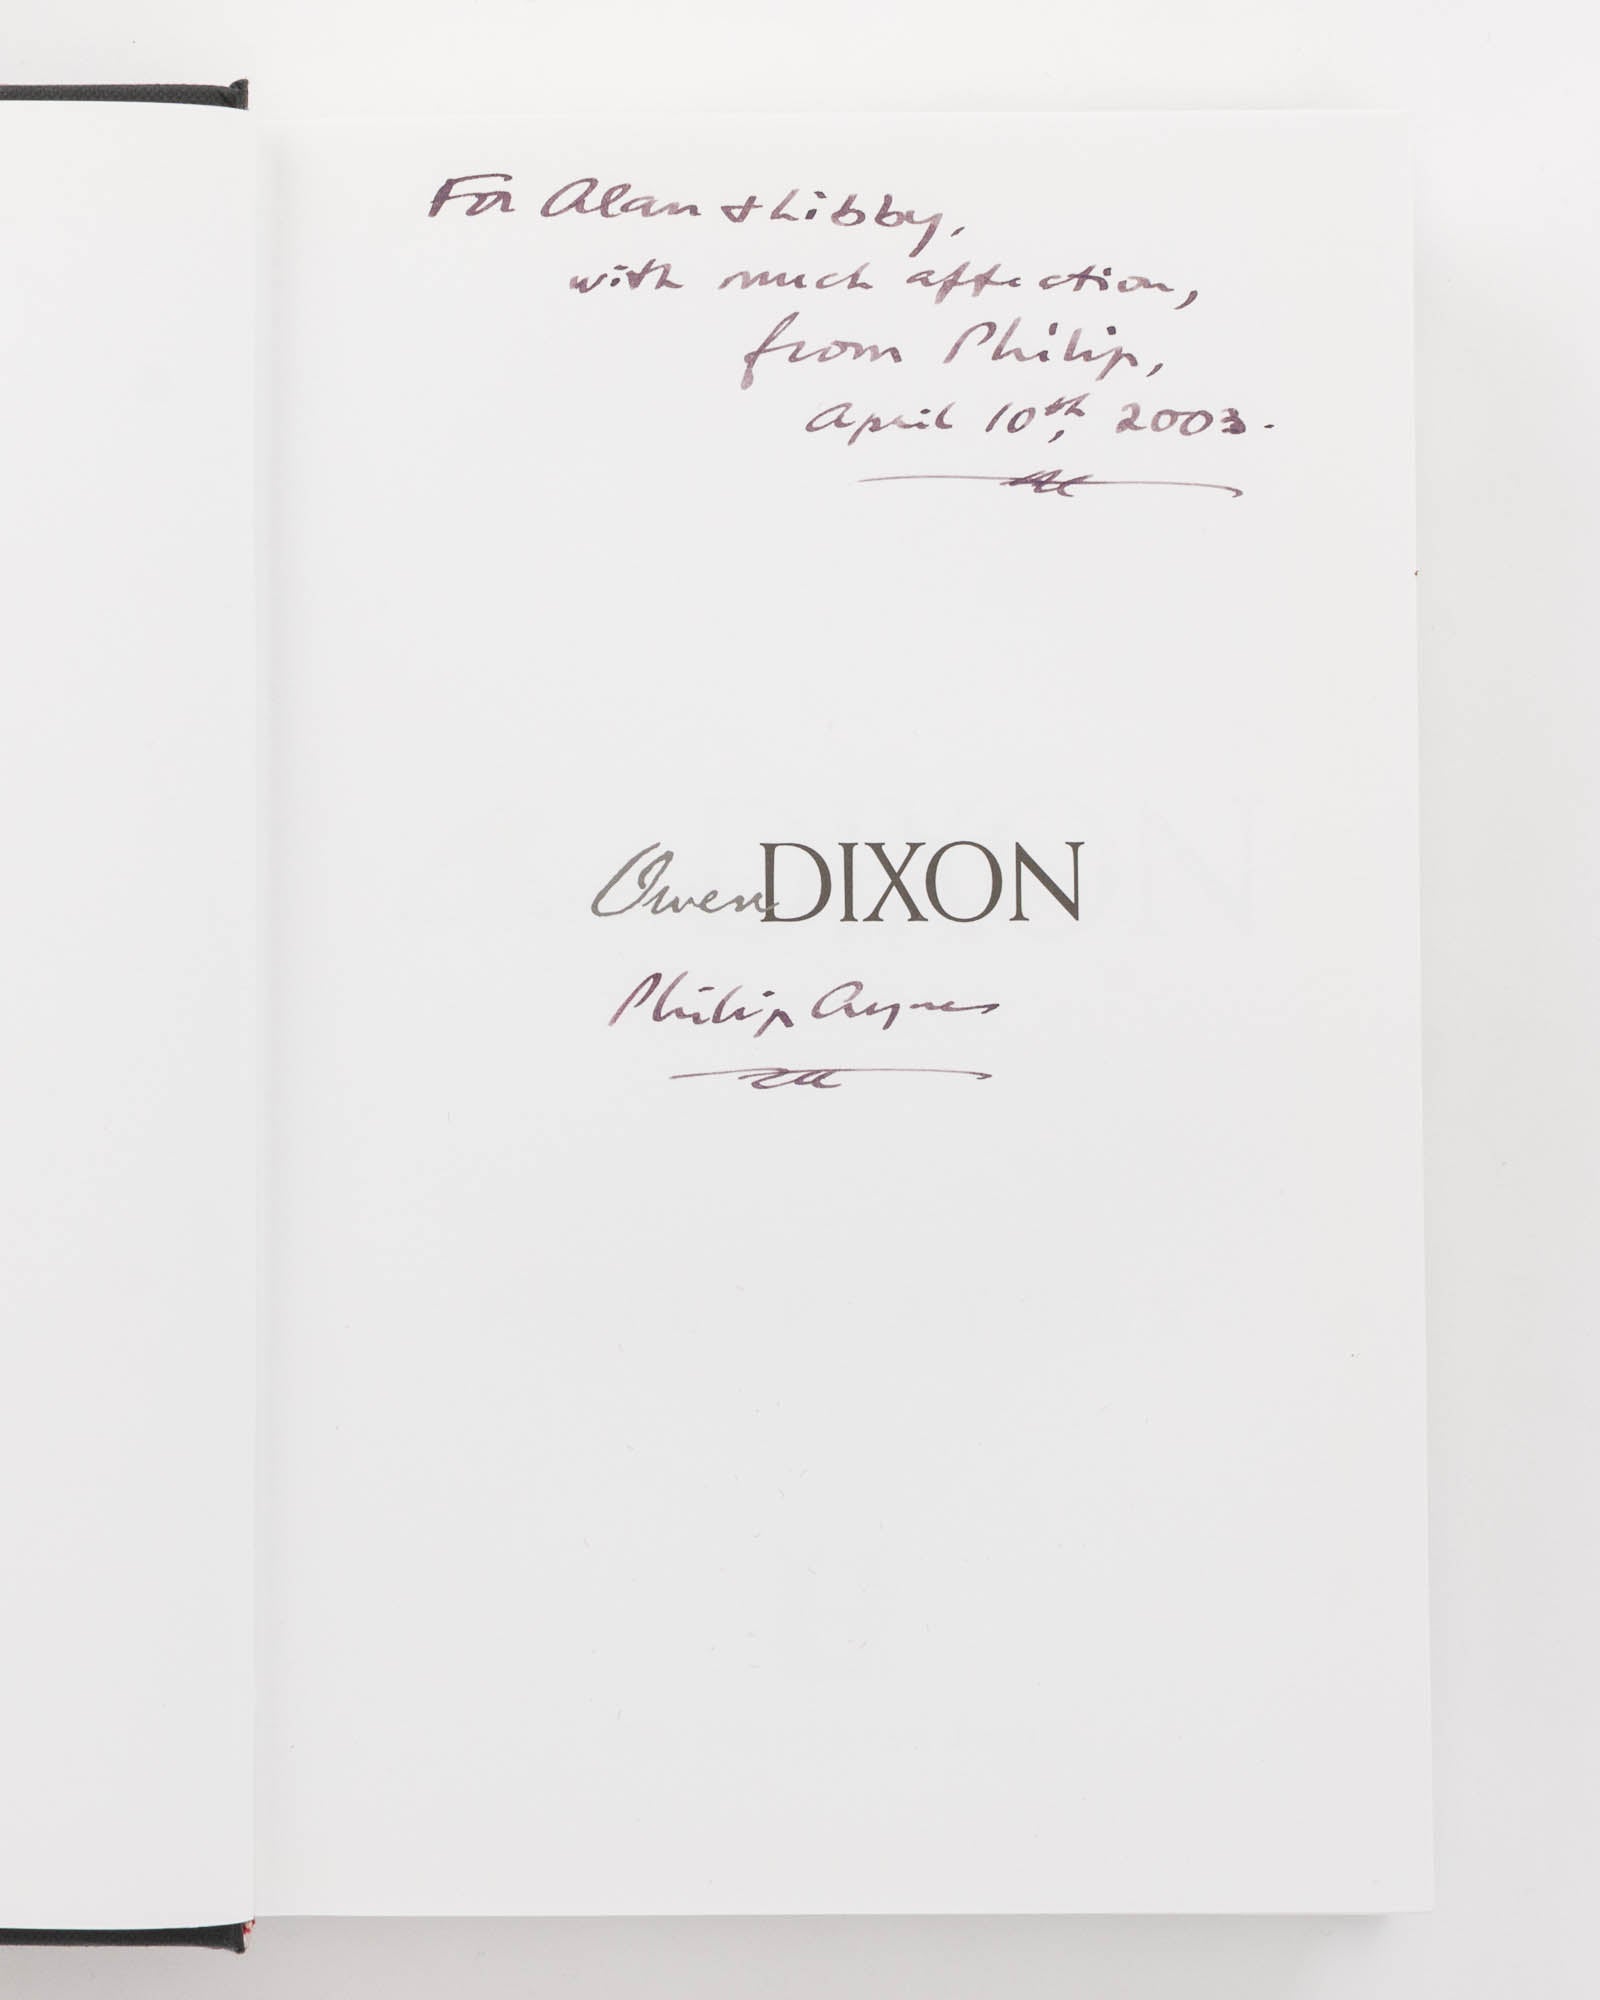 For Alan + Libby,
with much affection,
from Philip,
April 10th, 2003.
Owen DIXON
Philip Ayres